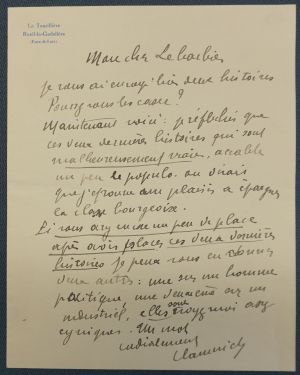 La Tourillière
Rueil-la-Gadelière
(Eure-&-Loir)
Mon cher Lebarbier
Je vous ai envoyé hier deux histoires
Pouvez vous les caser?
Maintenant voici: réfléchis que
ces deux dernières histoires qui sont
malheureusement vraies, accable
un peu le populo. on dirait
que j'éprouve un plaisir à épargner
la classe bourgeoise.
Si vous avez encore un peu de place
après avoir placé ces deux dernières
histoires je peux vous en donner
deux autres: une sur un homme
politique, une deuxième sur un
industriel, elles sont assez
cyniques. Un mot
cordialement
Vlaminck